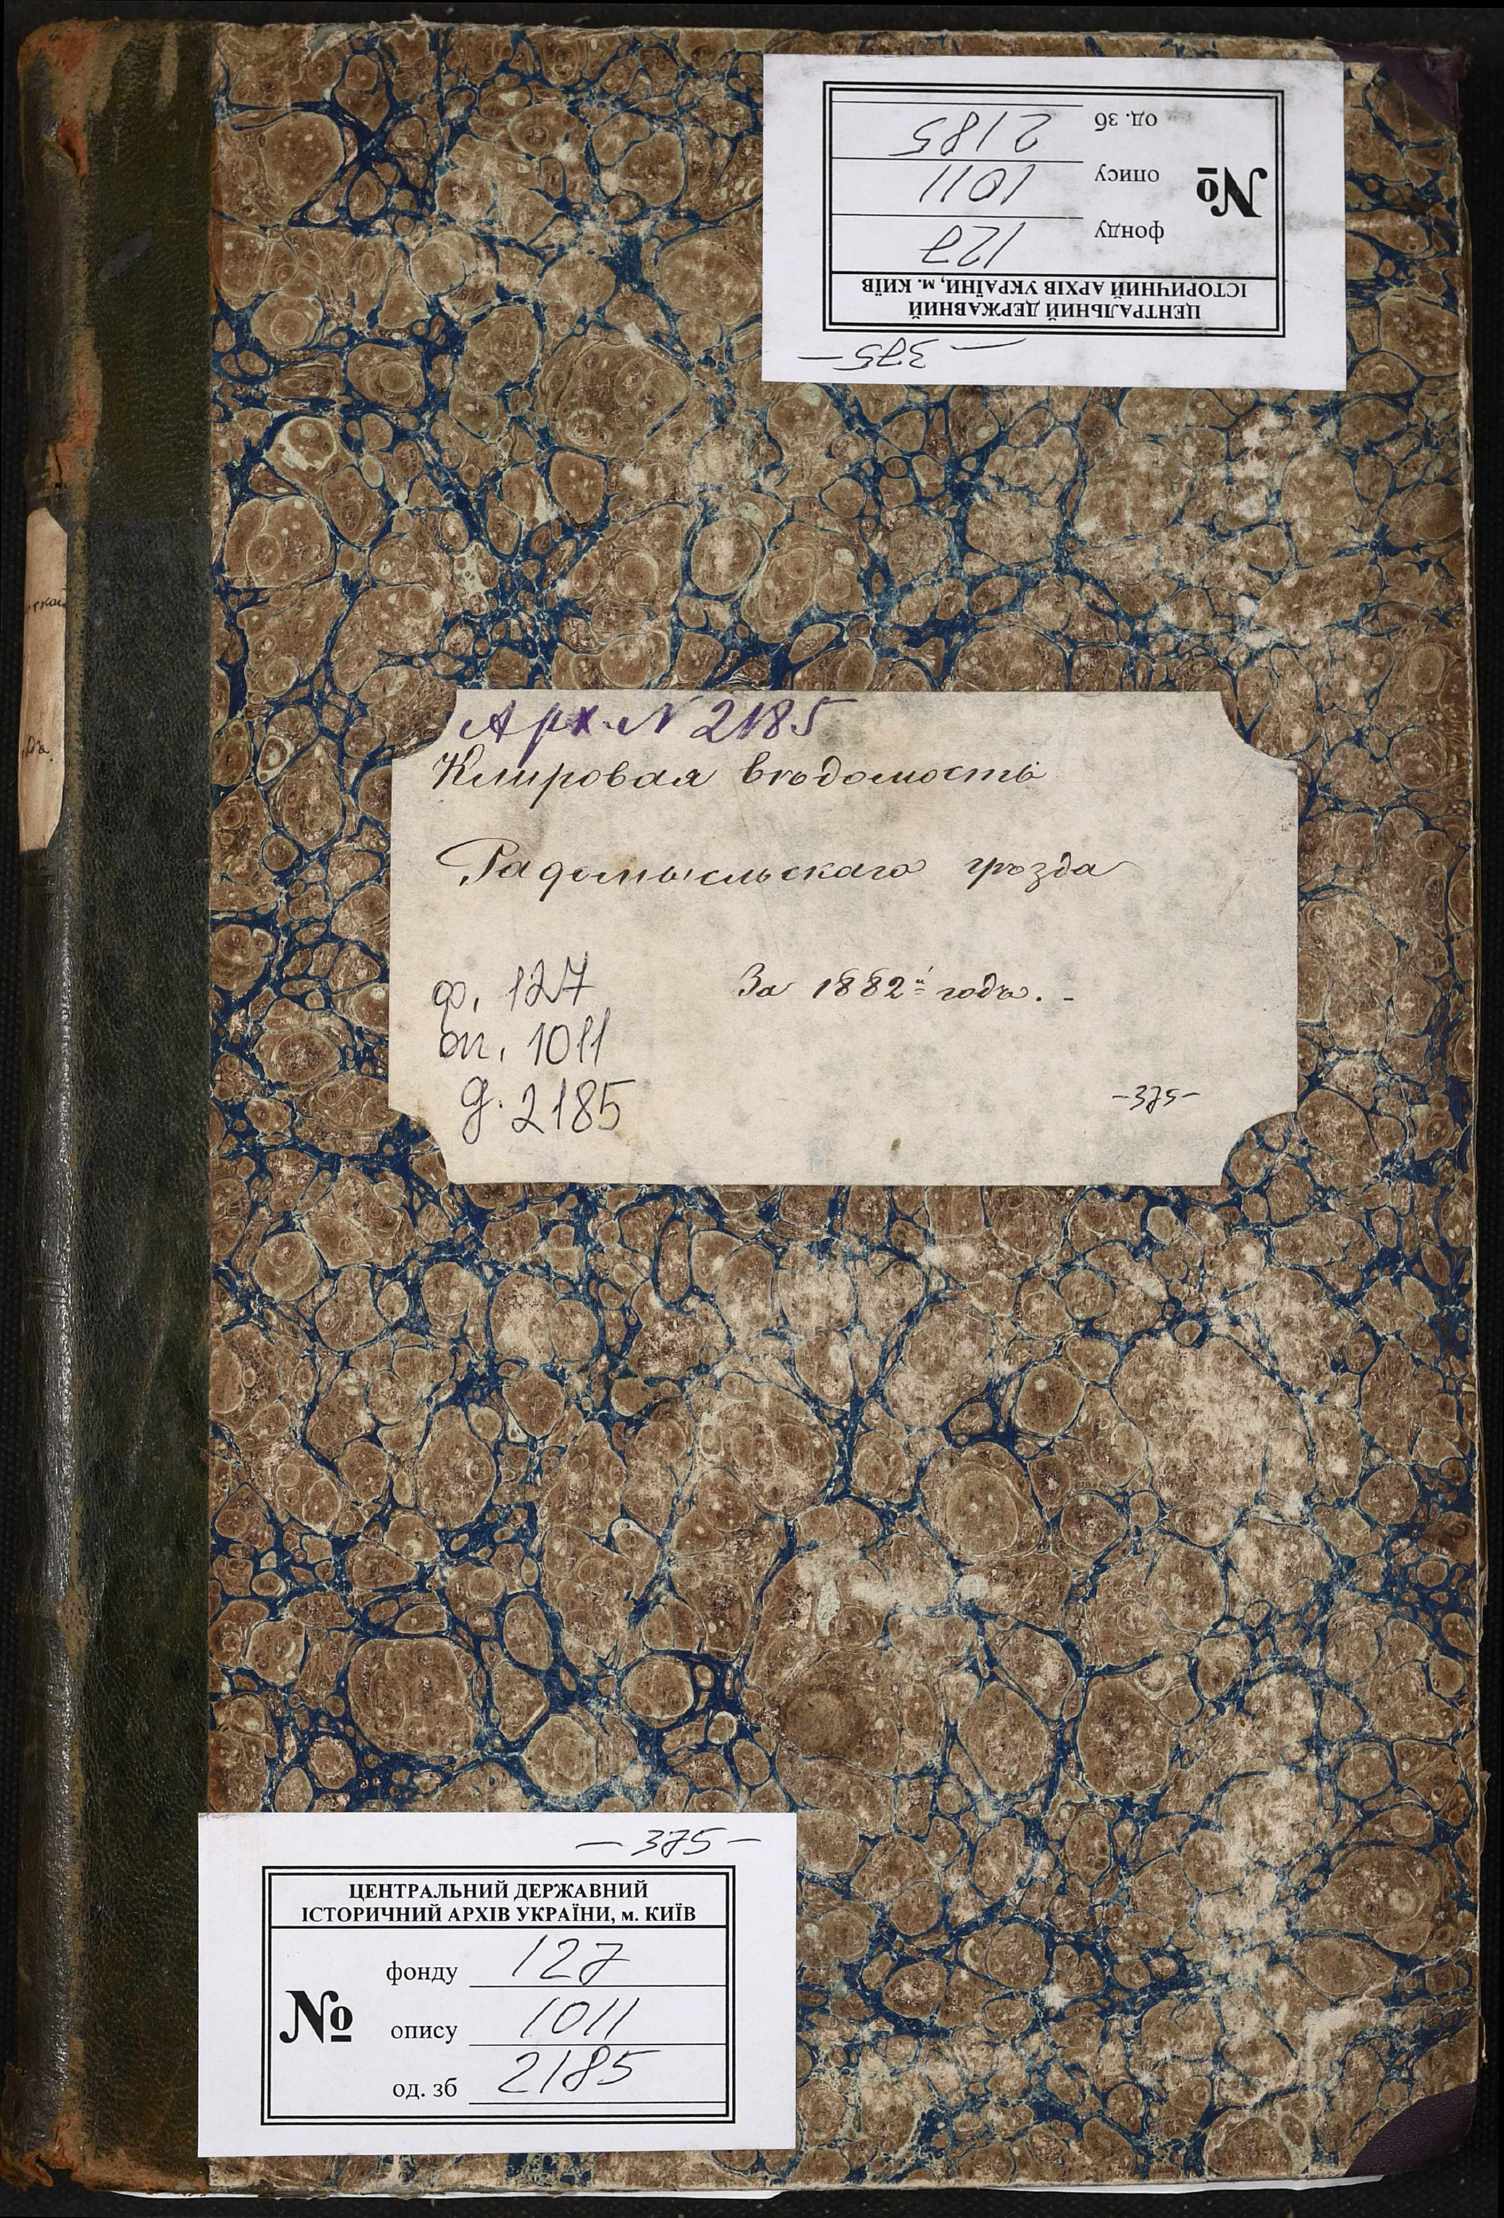 ЦЕНТРАЛЬНИЙ ДЕРЖАВНИЙ
ІСТОРИЧНИЙ АРХІВ УКРАЇНИ, м. КИЇВ
№
фонду 127
опису 1011
од. зб 2185
- 375 -
Арх. N 2185
Клировая вѣдомость
Радомысльскаго уѣзда
За 1882й годъ. -
ф. 127
оп. 1011
д. 2185
- 375 -
- 375 -
ЦЕНТРАЛЬНИЙ ДЕРЖАВНИЙ
ІСТОРИЧНИЙ АРХІВ УКРАЇНИ, м. КИЇВ
№
фонду 127
опису 1011
од. зб 2185